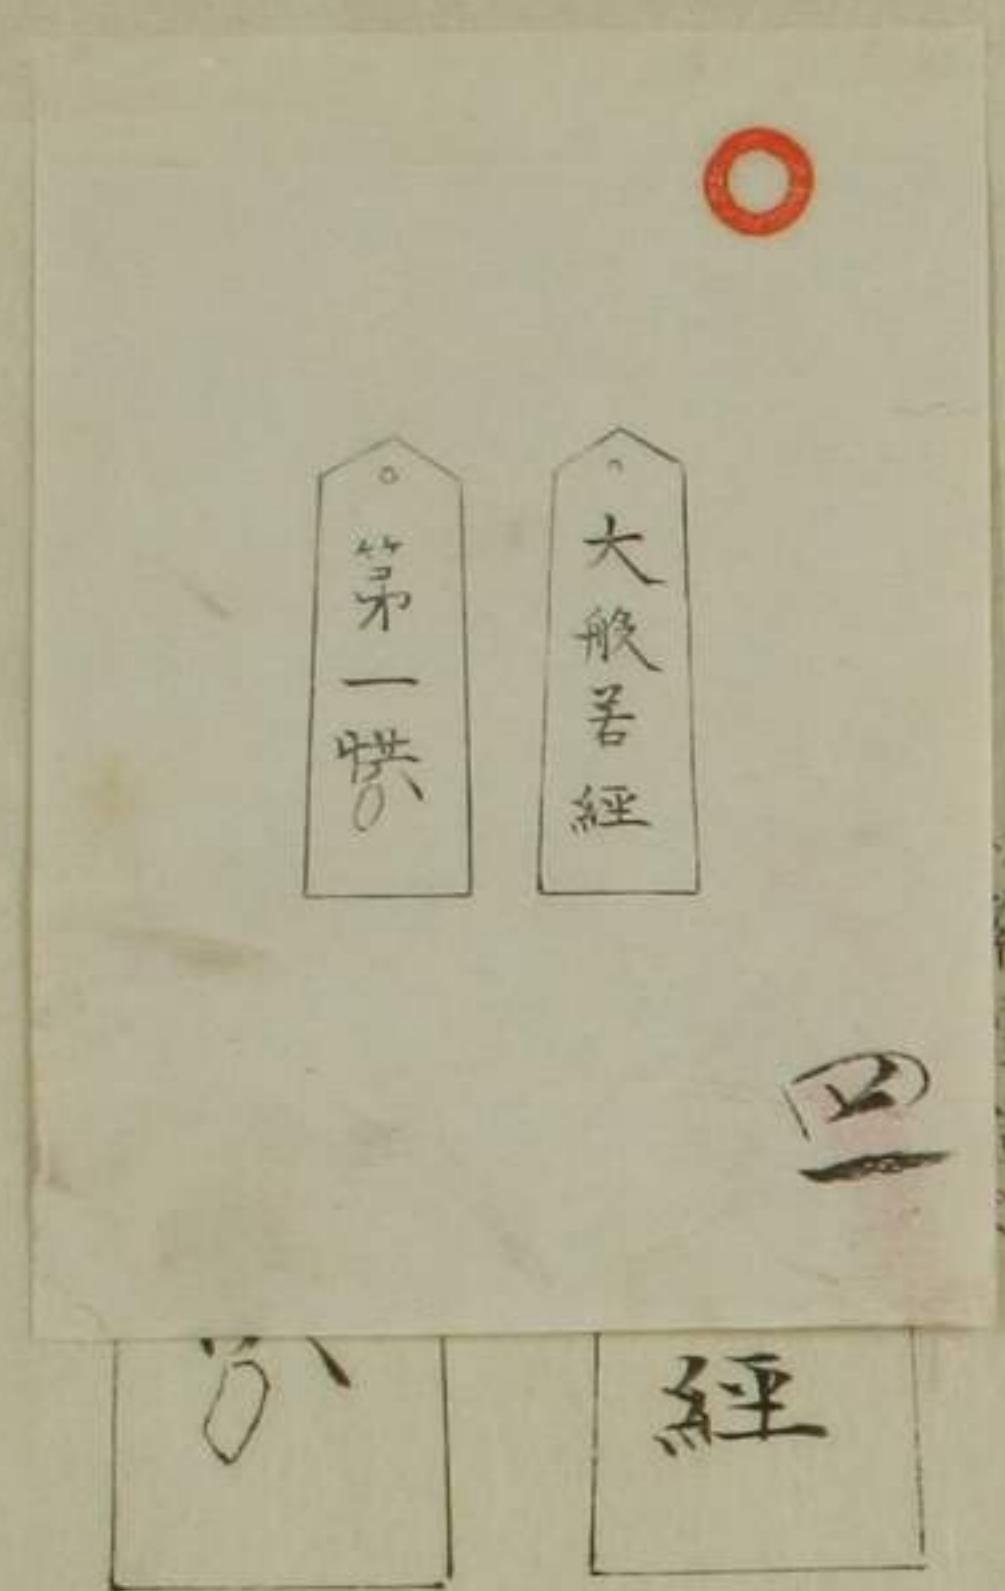 大般若經
第一帙
四一
經